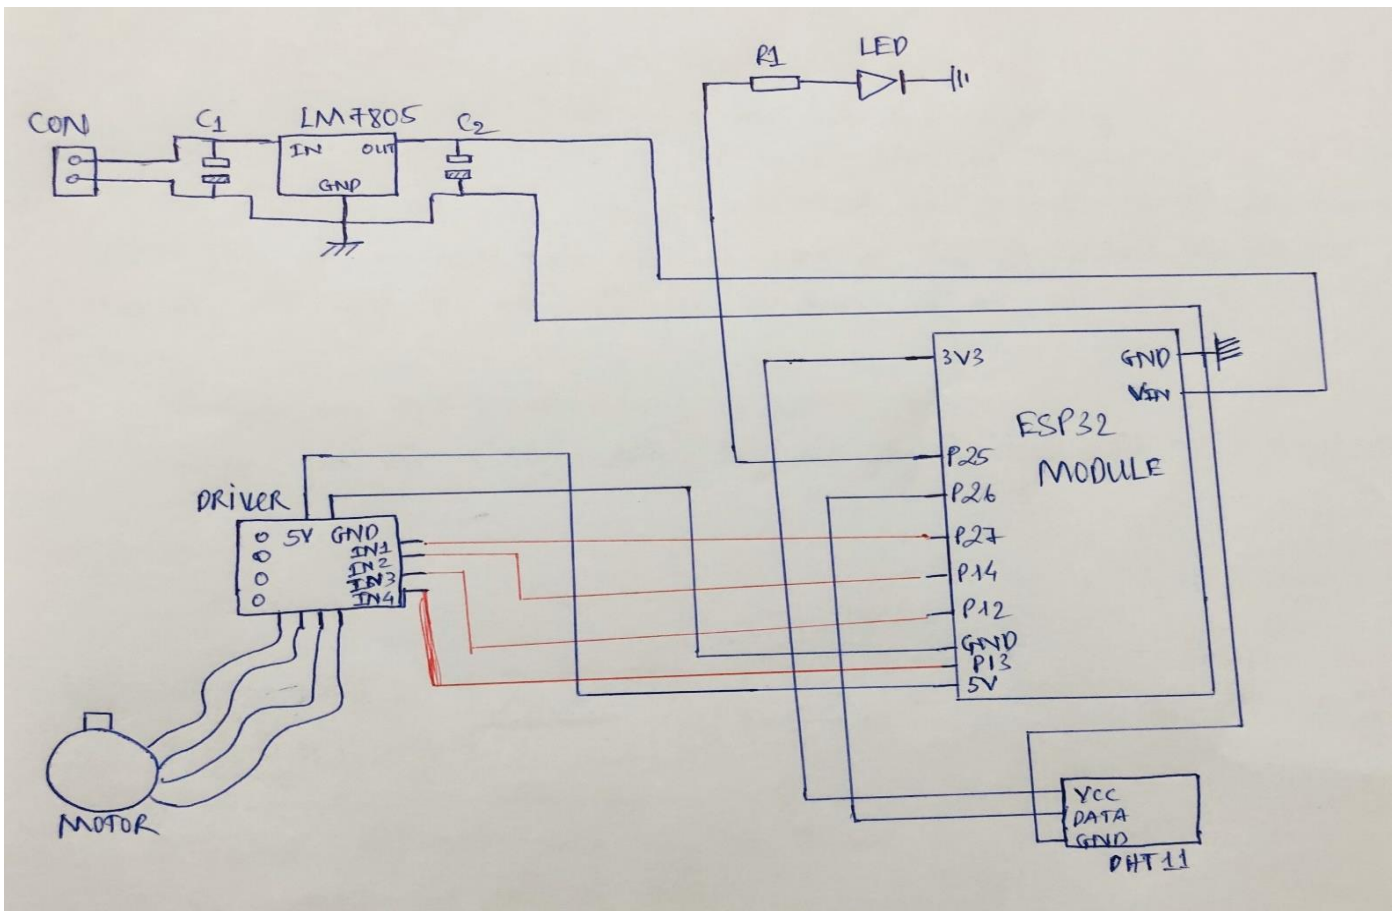 R1
LED
CON
C1
LM7805
C2
IN
OUT
GND
3V3
GND
VIN
ESP32
MODULE
P25
P26
P27
P14
P12
GND
P13
5V
DRIVER
5V
GND
IN1
IN2
IN3
IN4
MOTOR
VCC
DATA
GND
DHT11